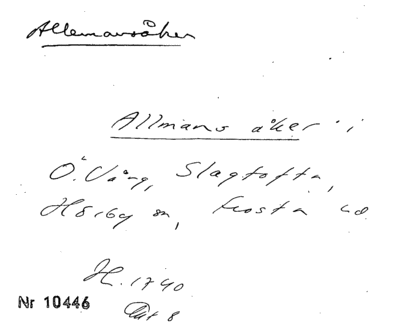 Allemansåker
Allmans åker i
Ö. Vång, Slagtofta,
Hörby sn, Frosta hd
H. 1740
Nr 10446
Akt 8